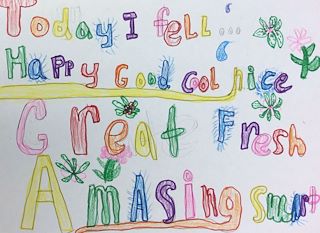 Today I fell...
Happy Good Col nice
Great Fresh
Amasing smart